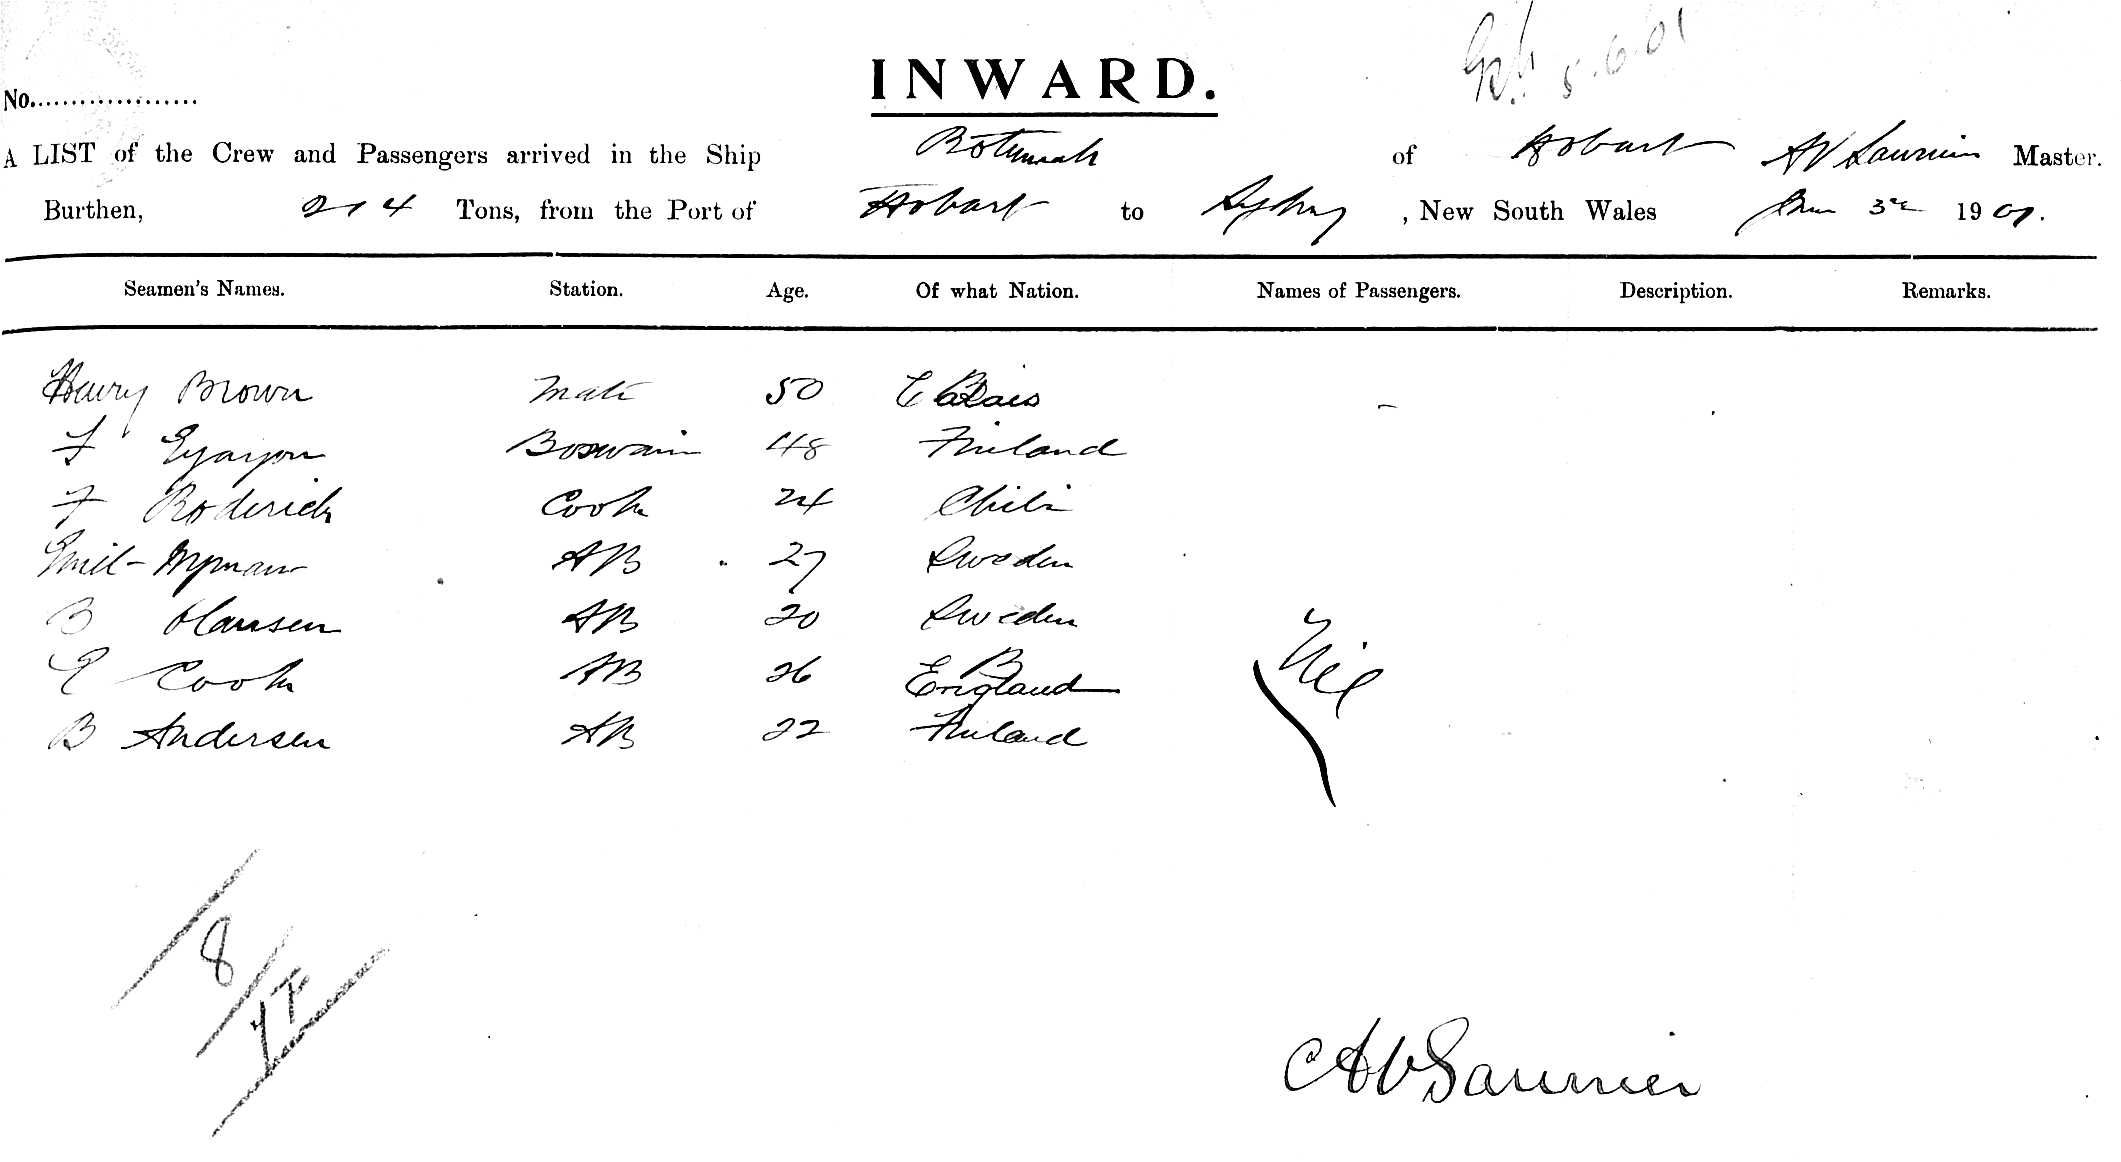 5.6.01
INWARD.
No...................
A LIST of the Crew and Passengers arrived in the Ship Rotumah of Hobart AV Saunier Master.
Burthen, 214 Tons, from the Port of Hobart to Sydney, New South Wales June 3rd 1901.
Seamen's Names. Station. Age. Of what Nation. Names of Passengers. Description. Remarks.
Henry Brown Mate 50
F Boswain 48 Finland
F Roderick Cook 24 Chili
Emil Nyman AB 27 Sweden
B Hansen AB 20 Sweden
E Cook AB 26 England
B Andersen AB 22 Finland
Nil
8
AV Saunier